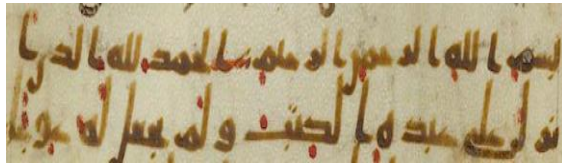 بسم الله الرحمن الرحيم الحمد لله الذي ا
نزل على عبده الكتب ولم يجعل له عوجا